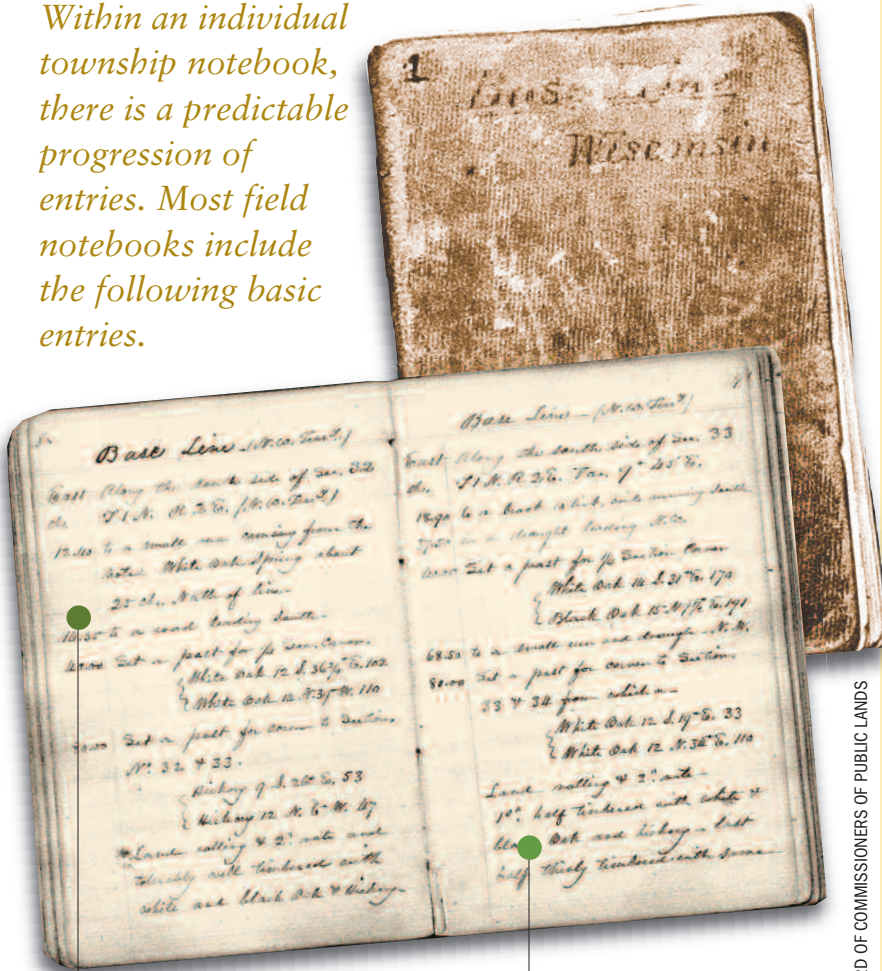 Within an individual
township notebook,
there is a predictable
progression of
entries. Most field
notebooks include
the following basic
entries.
1
Base Line
Wisconsin
Base Line (N.W. Terr.)
East Along the south side of Sec. 32
T 1 N. R. 2 E. (N.W. Terr.)
12.40 to a small run coming from the
White Oak Spring about
25 ch. North of line
14.35 to a road leading South
40.00 Set a post for ¼ Sec. Corner
White Oak 12 S. 36½ E. 102
White Oak 14 N. 35 W. 110
80.00 Set a post for corner to Sections
No. 32 & 33.
Hickory 9 S. 26 E. 53
Hickory 12 N. 6 W. 47
Land rolling & 2d rate and
tolerably well timbered with
white and black Oak & Hickory
Base Line (N.W. Terr.)
East Along the south side of Sec. 33
T 1 N. R 2 E. Var. 9° 45' E.
18.90 to a brook 10 lks. wide running South
in a draught leading N.W.
40.00 Set a post for ¼ Section Corner
White Oak 14 S. 31 E. 170
Black Oak 15 E. 191
68.50 to a small run and draught N.W.
80.00 Set a post for corner to Sections
33 & 34 from which a
White Oak 12 S. 19 E. 33
White Oak 12 N. 34 E. 110
Land rolling & 2d rate
1st half timbered with white &
black Oak and hickory - last
half thinly timbered with same
RD OF COMMISSIONERS OF PUBLIC LANDS